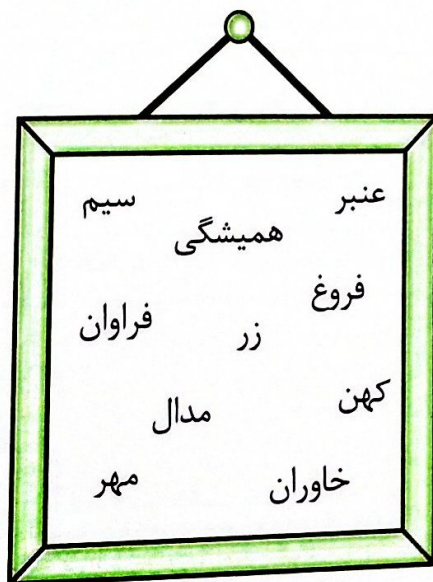 عنبر
سیم
همیشگی
فروغ
فراوان
زر
کهن
مدال
خاوران
مهر